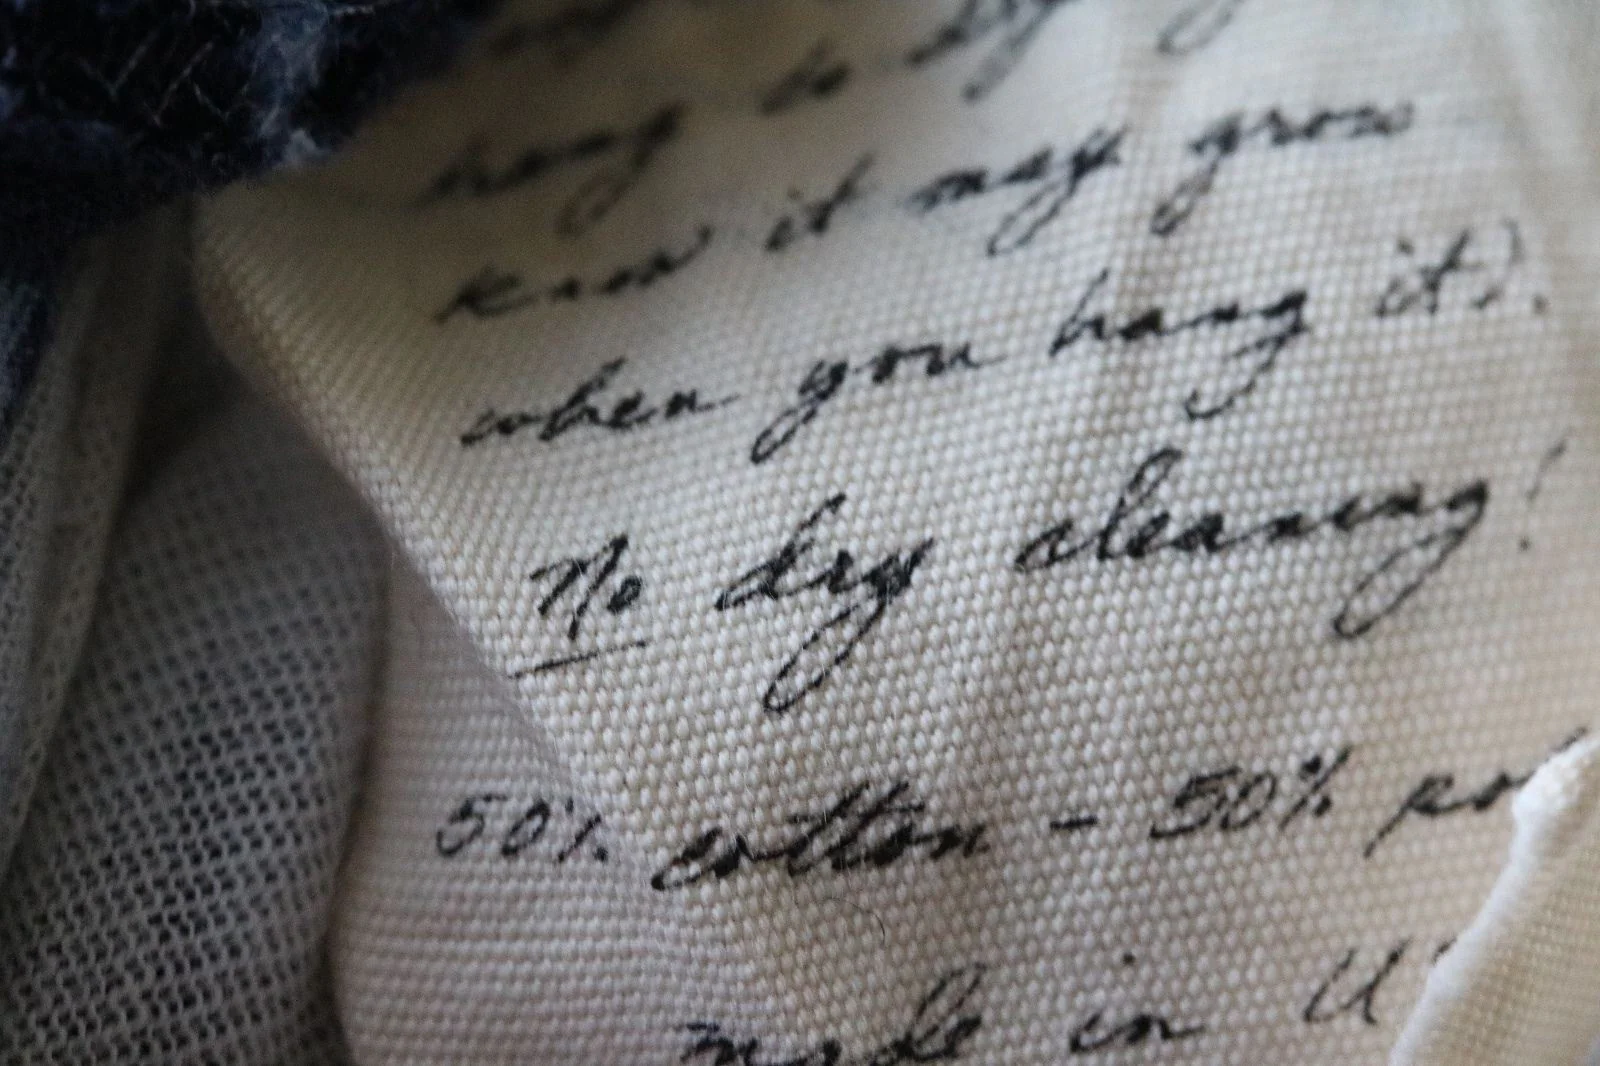 hang to dry
know it may grow
when you hang it).
No dry cleaning!
50% cotton - 50% po
made in U